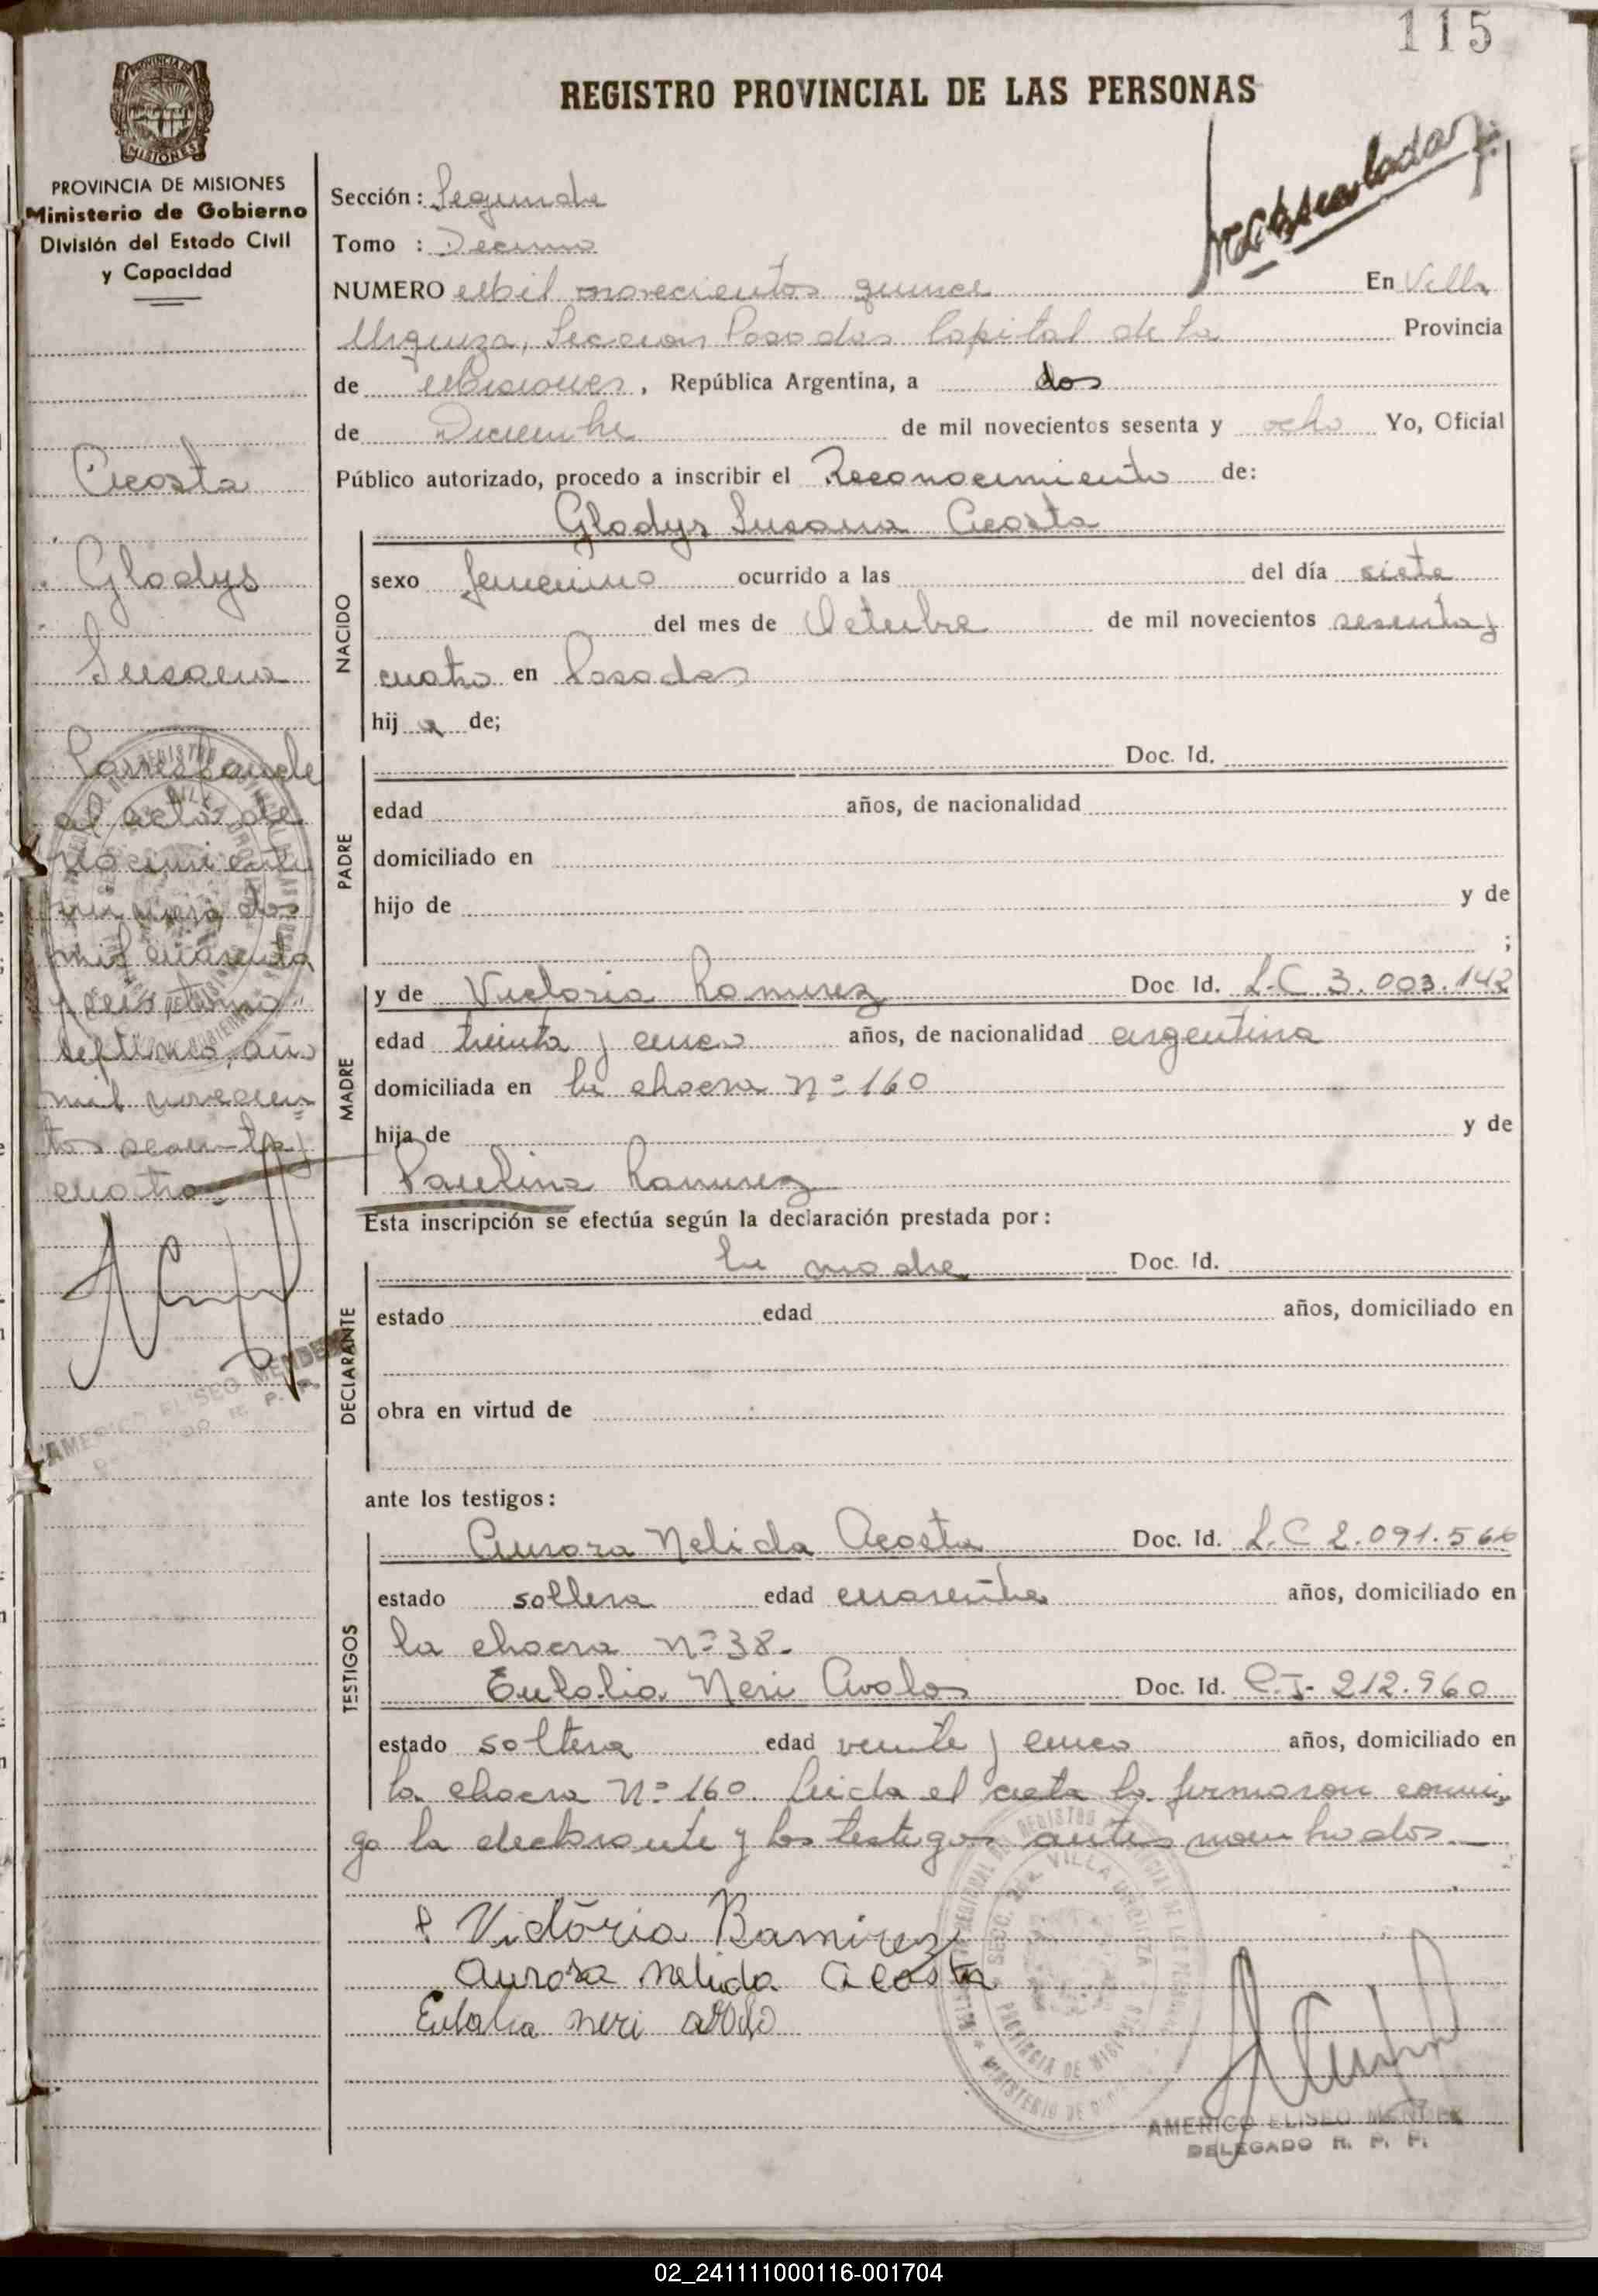 115
REGISTRO PROVINCIAL DE LAS PERSONAS
PROVINCIA DE MISIONES
Ministerio de Gobierno
División del Estado Civil
y Capacidad
Sección: Segunda
Tomo : Decimo
NUMERO Mil novecientos quince En Villa
Urquiza, Seccion Posadas Capital de la Provincia
de Misiones, República Argentina, a dos
de Diciembre de mil novecientos sesenta y ocho Yo, Oficial
Público autorizado, procedo a inscribir el Reconocimiento de:
Gladys Susana Acosta
NACIDO
sexo femenino ocurrido a las del día siete
del mes de Octubre de mil novecientos sesenta y
cuatro en Posadas
hij a de;
PADRE
Doc. Id.
edad años, de nacionalidad
domiciliado en
hijo de y de
;
MADRE
y de Victoria Ramirez Doc Id. L.C 3.003.142
edad treinta y cinco años, de nacionalidad argentina
domiciliada en la chacra Nº 160
hija de y de
Paulina Ramirez
Esta inscripción se efectúa según la declaración prestada por:
DECLARANTE
la madre Doc. Id.
estado edad años, domiciliado en
obra en virtud de
ante los testigos:
TESTIGOS
Aurora Nelida Acosta Doc. Id. L.C 2.091.560
estado soltera edad cuarenta años, domiciliado en
la chacra Nº 38.
Eulalia Neri Avalos Doc. Id. C.I. 212.960
estado soltera edad veinte y cinco años, domiciliado en
la chacra Nº 160. Leida el acta la firmaron conmi-
go la declarante y los testigos antes nombrados
Victória Ramirez
Aurora nelida acosta
Eulalia neri
AMERICO ELISEO MENDEZ
DELEGADO R. P. P.
Acosta
Gladys
Susana
Corresponde
al acta de
nacimiento
numero dos
mil cuarenta
y seis, tomo
septimo, año
mil novecien
tos sesenta y
cuatro.
AMERICO ELISEO MENDEZ
02_241111000116-001704